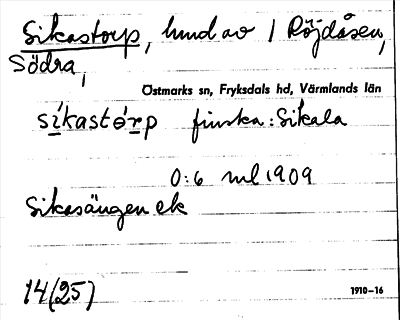 Sikastorp, hmd av 1 Röjdåsen,
Södra,
Östmarks sn, Fryksdals hd, Värmlands län
síkastó̀rp finska: Sikala
0:6 ml 1909
Sikasängen ek
14(25)
1910-16